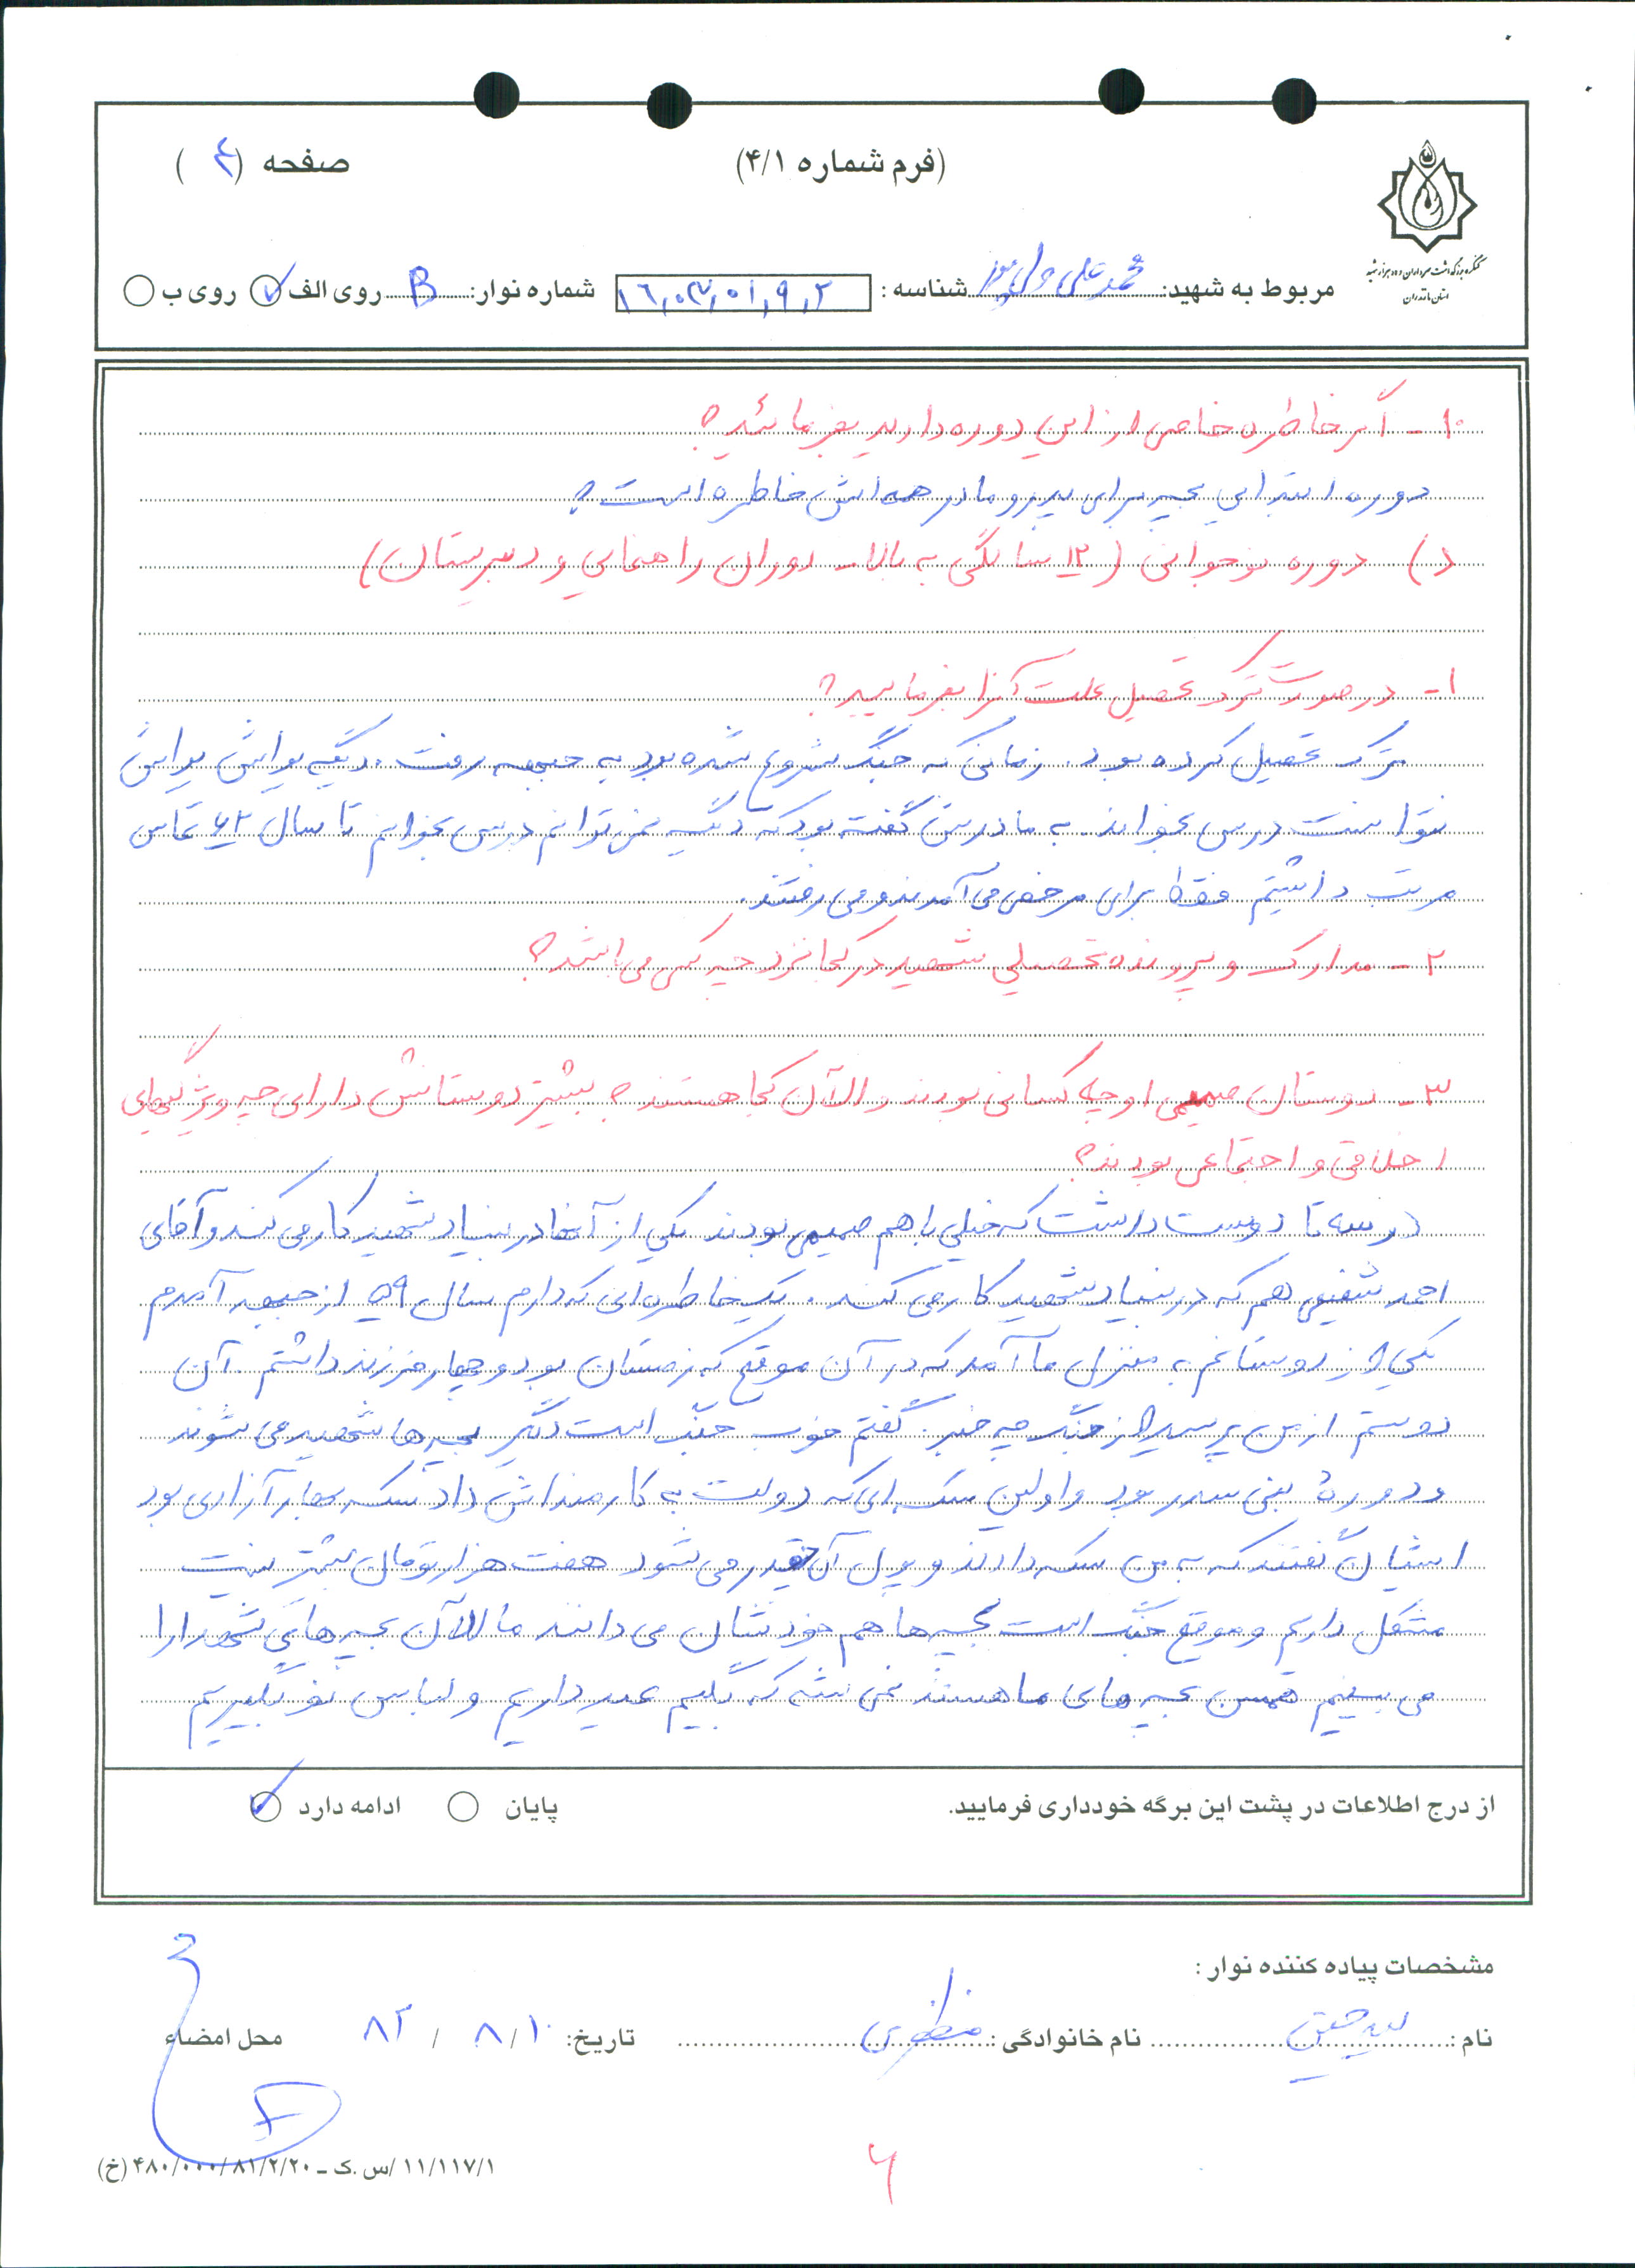 (فرم شماره ۴/۱)
صفحه (۴)
کنگره بزرگداشت سرداران و ده هزار شهید
استان مازندران
مربوط به شهید: محمدعلی ولی پور شناسه: ۱۶,۰۳,۰۱,۹,۲ شماره نوار: B روی الف روی ب
۱۰- اگر خاطره خاصی از این دوره دارید بفرمائید؟
دوره ابتدایی بچه برای پدر و مادر همه اش خاطره است؟
د) دوره نوجوانی (۱۲ سالگی به بالا - دوران راهنمایی و دبیرستان)
۱- در صورت ترک تحصیل علت آنرا بفرمایید؟
ترک تحصیل کرده بود. زمانی که جنگ شروع شده بود به جبهه رفت. دیگه برایش برایش
نتوانست درس بخواند. به مادرش گفته بود که دیگه نمی توانم درس بخوانم تا سال ۶۲ تماس
مرتب داشتیم فقط برای مرخصی می آمدند و می رفتند.
۲- مدارک و پرونده تحصیلی شهید در کجا نزد چه کسی می باشد؟
۳- دوستان صمیمی او چه کسانی بودند و الآن کجا هستند؟ بیشتر دوستانش دارای چه ویژگیهای
اخلاقی و اجتماعی بودند؟
دو سه تا دوست داشت که خیلی با هم صمیمی بودند یکی از آنها در بنیاد شهید کار می کند و آقای
احمد شفیعی هم که در بنیاد شهید کار می کند. یک خاطره ای که دارم سال ۵۹ از جبهه آمدم
یکی از دوستانم به منزل ما آمد که در آن موقع که زمستان بود و چهار فرزند داشتم. آن
دوستم از من پرسید از جنگ چه خبر. گفتم خوب جنگ است دیگر بچه ها شهید می شوند
و دورهٔ بنی صدر بود و اولین سکه ای که دولت به کارمنداش داد سکه بهار آزادی بود
ایشان گفتند که به من سکه دادند و پول آن چقدر می شود هفت هزار تومان بیشتر نیست
مشکل داریم و موقع جنگ است بچه ها هم خودشان می دانند ما الآن بچه های شهدا را
می بینیم همین بچه های ما هستند نمی شه که بگیم عید داریم و لباس نو بگیریم
از درج اطلاعات در پشت این برگه خودداری فرمایید.
ادامه دارد پایان
مشخصات پیاده کننده نوار:
نام: سید حسین نام خانوادگی: منظری تاریخ: ۱۰/ ۸ / ۸۲ محل امضاء
۱۱/۱۱۷/۱ /س.ک - ۴۸۰/۰۰۰/۸۱/۲/۲۰ (خ)
۶